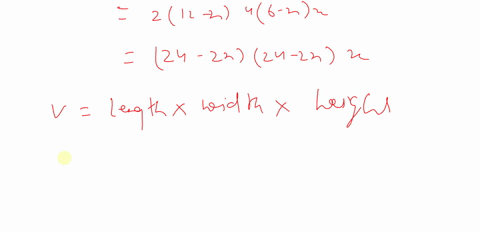 = 2(12-x) 4(6-x)x
= (24-2x)(24-2x) x
V = length x width x height